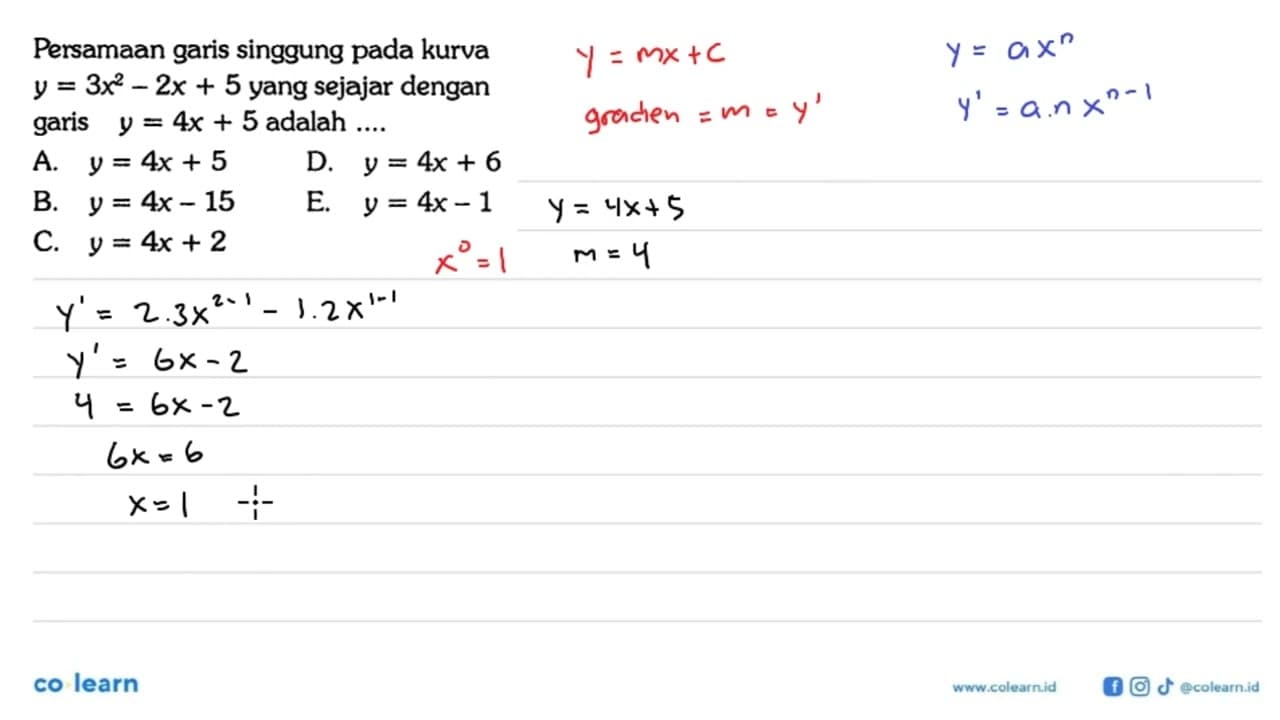 Persamaan garis singgung pada kurva
y = 3x² – 2x + 5 yang sejajar dengan
garis y = 4x + 5 adalah ....
A. y = 4x + 5 D. y = 4x + 6
B. y = 4x – 15 E. y = 4x – 1
C. y = 4x + 2
y = mx + c
gradien = m = y'
y = axⁿ
y' = a.n xⁿ⁻¹
y = 4x + 5
m = 4
x⁰ = 1
y' = 2.3x²⁻¹ – 1.2x¹⁻¹
y' = 6x – 2
4 = 6x – 2
6x = 6
x = 1
co learn
www.colearn.id
@colearn.id